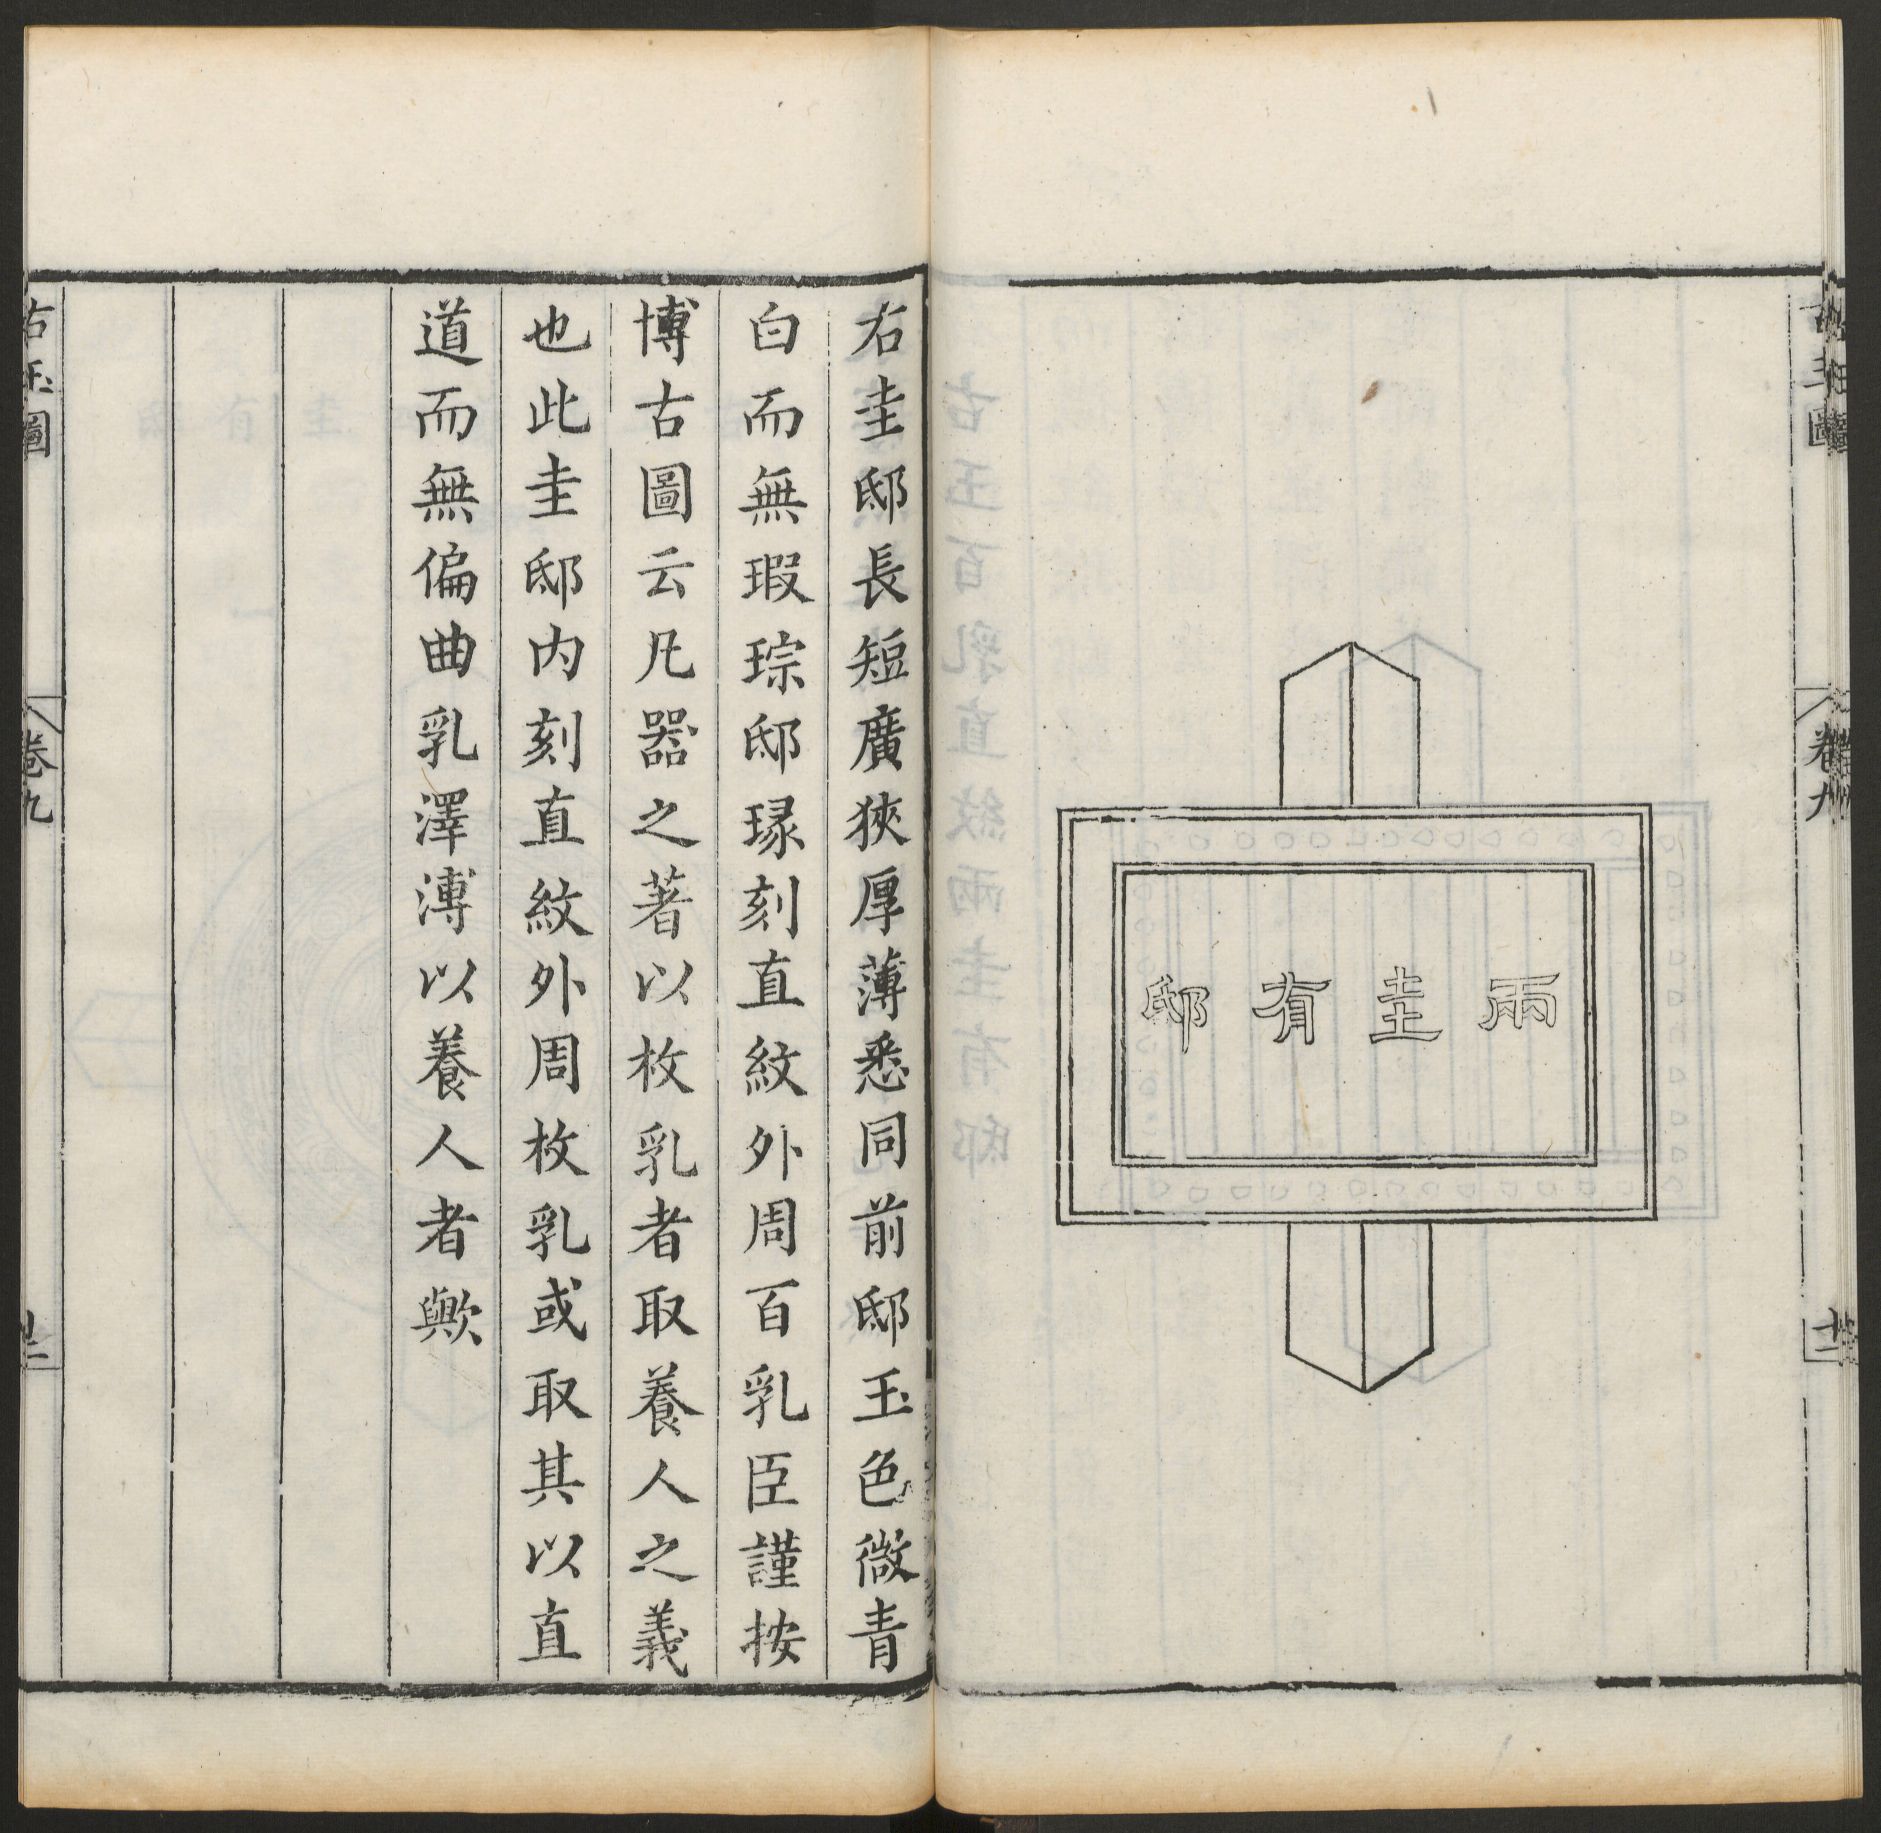 兩圭有邸
右圭邸長短廣狹厚薄悉同前邸玉色微青
白而無瑕琮邸瑑刻直紋外周百乳臣謹按
博古圖云凡器之著以枚乳者取養人之義
也此圭邸内刻直紋外周枚乳或取其以直
道而無偏曲乳澤溥以養人者歟
古玉圖
卷九